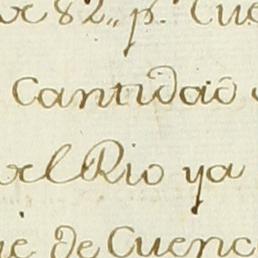 82,, p.s Cue
Cantidad
el Rio ya
de Cuenc